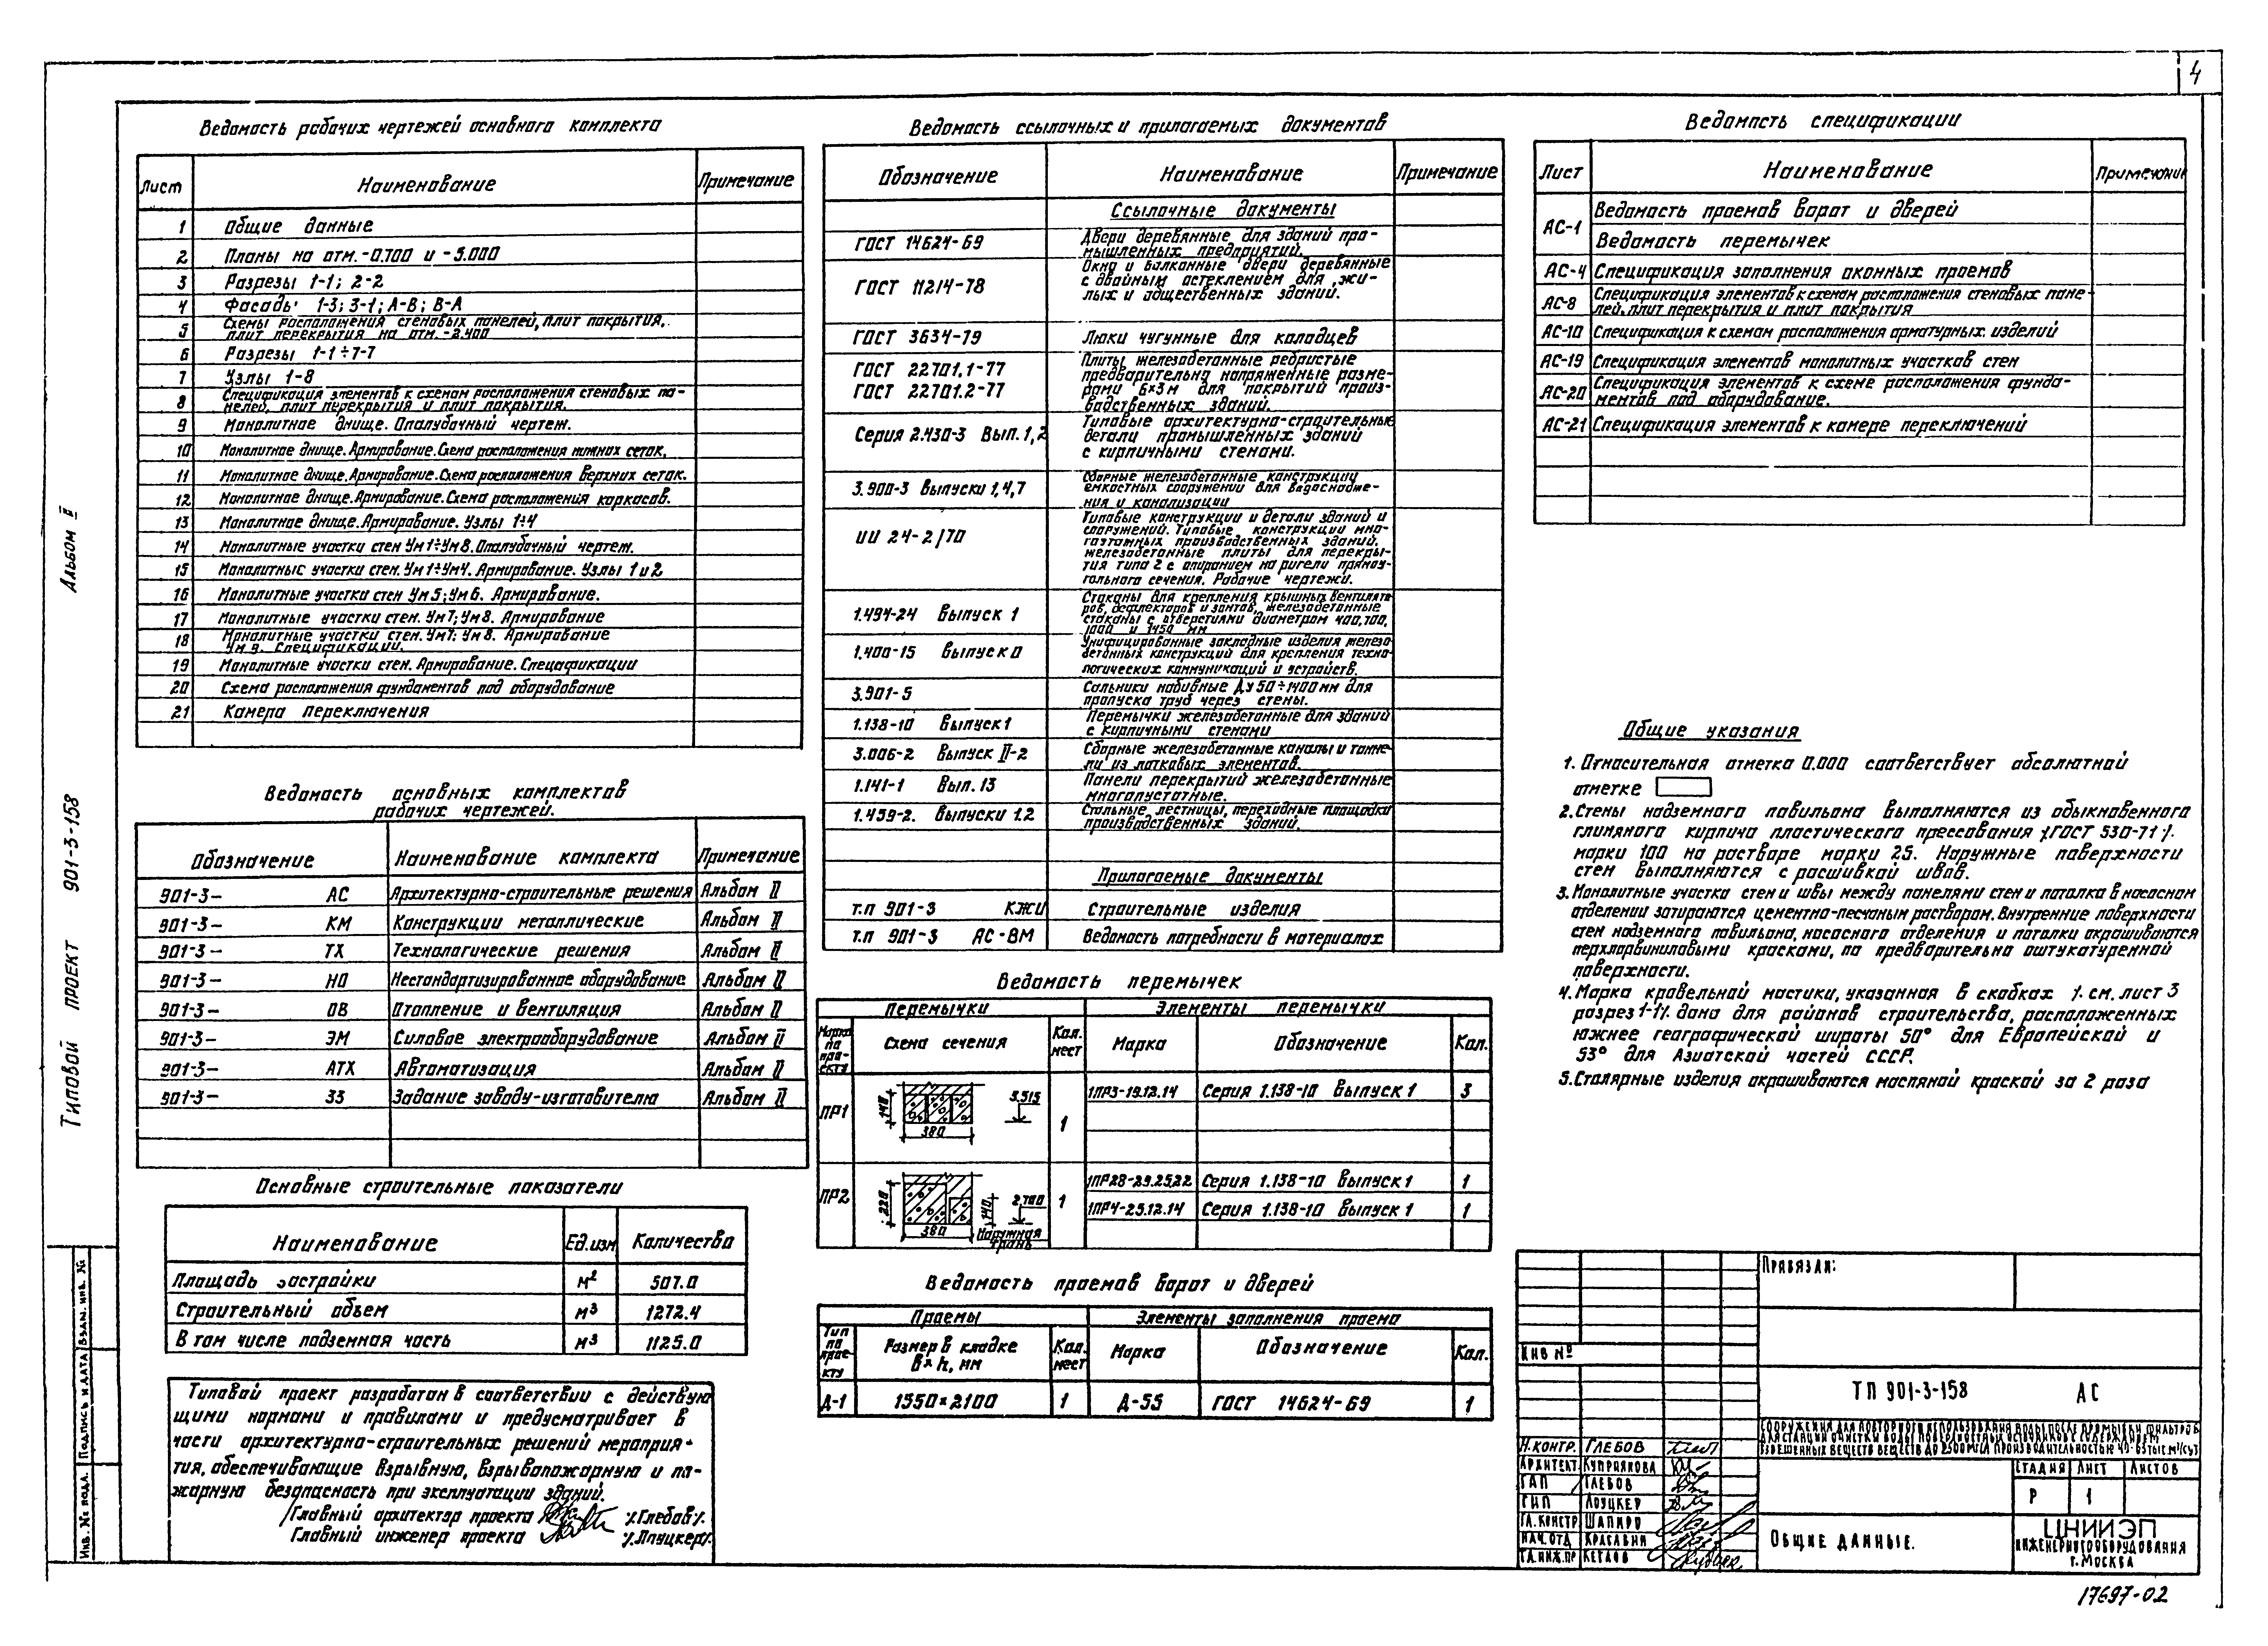 4
Ведомость рабочих чертежей основного комплекта
Лист Наименование Примечание
1 Общие данные
2 Планы на отм. -0.700 и -5.000
3 Разрезы 1-1; 2-2
4 Фасады 1-3; 3-1; А-В; В-А
5 Схемы расположения стеновых панелей, плит покрытия,
плит перекрытия на отм. -2.400
6 Разрезы 1-1÷7-7
7 Узлы 1-8
8 Спецификация элементов к схемам расположения стеновых па-
нелей, плит перекрытия и плит покрытия.
9 Монолитное днище. Опалубочный чертеж.
10 Монолитное днище. Армирование. Схема расположения нижних сеток.
11 Монолитное днище. Армирование. Схема расположения верхних сеток.
12 Монолитное днище. Армирование. Схема расположения каркасов.
13 Монолитное днище. Армирование. Узлы 1÷4
14 Монолитные участки стен Ум1÷Ум8. Опалубочный чертеж.
15 Монолитные участки стен. Ум1÷Ум4. Армирование. Узлы 1 и 2
16 Монолитные участки стен Ум5; Ум6. Армирование.
17 Монолитные участки стен. Ум7; Ум8. Армирование
18 Монолитные участки стен. Ум7; Ум8. Армирование
Ум 9. Спецификации.
19 Монолитные участки стен. Армирование. Спецификации
20 Схема расположения фундаментов под оборудование
21 Камера переключения
Ведомость основных комплектов
рабочих чертежей.
Обозначение Наименование комплекта Примечание
901-3- АС Архитектурно-строительные решения Альбом II
901-3- КМ Конструкции металлические Альбом II
901-3- ТХ Технологические решения Альбом II
901-3- НО Нестандартизированное оборудование Альбом II
901-3- ОВ Отопление и вентиляция Альбом II
901-3- ЭМ Силовое электрооборудование Альбом II
901-3- АТХ Автоматизация Альбом II
901-3- ЗЗ Задание заводу-изготовителю Альбом II
Основные строительные показатели
Наименование Ед.изм Количество
Площадь застройки м² 507.0
Строительный объем м³ 1272.4
В том числе подземная часть м³ 1125.0
Типовой проект разработан в соответствии с действую
щими нормами и правилами и предусматривает в
части архитектурно-строительных решений мероприя-
тия, обеспечивающие взрывную, взрывопожарную и по-
жарную безопасность при эксплуатации зданий.
Главный архитектор проекта /Глебов/.
Главный инженер проекта /Лоуцкер/.
Ведомость ссылочных и прилагаемых документов
Обозначение Наименование Примечание
Ссылочные документы
ГОСТ 14624-69 Двери деревянные для зданий про-
мышленных предприятий.
ГОСТ 11214-78 Окна и балконные двери деревянные
с двойным остеклением для жи-
лых и общественных зданий.
ГОСТ 3634-79 Люки чугунные для колодцев
ГОСТ 22701.1-77 Плиты железобетонные ребристые
предварительно напряженные разме-
ГОСТ 22701.2-77 рами 6×3м для покрытий произ-
водственных зданий.
Серия 2.430-3 Вып. 1, 2 Типовые архитектурно-строительные
детали промышленных зданий
с кирпичными стенами.
3.900-3 Выпуски 1,4,7 Сборные железобетонные конструкции
емкостных сооружений для водоснабже-
ния и канализации
ИИ 24-2/70 Типовые конструкции и детали зданий и
сооружений. Типовые конструкции мно-
гоэтажных производственных зданий.
железобетонные плиты для перекры-
тия типа 2 с опиранием на ригели прямоу-
гольного сечения. Рабочие чертежи.
1.494-24 Выпуск 1 Стаканы для крепления крышных вентилято
ров, дефлекторов и зонтов, железобетонные
стаканы с отверстиями диаметром 400, 700,
1000 и 1450 мм
1.400-15 Выпуск 0 Унифицированные закладные изделия железо
бетонных конструкций для крепления техно-
логических коммуникаций и устройств.
3.901-5 Сальники набивные Ду 50÷1400 мм для
пропуска труб через стены.
1.138-10 Выпуск 1 Перемычки железобетонные для зданий
с кирпичными стенами
3.006-2 Выпуск II-2 Сборные железобетонные каналы и тонне-
ли из лотковых элементов.
1.141-1 Вып. 13 Панели перекрытий железобетонные
многопустотные.
1.459-2. Выпуски 1.2 Стальные, лестницы, переходные площадки
производственных зданий.
Прилагаемые документы
т.п 901-3 КЖИ Строительные изделия
т.п 901-3 АС-ВМ Ведомость потребности в материалах
Ведомость перемычек
Перемычки Элементы перемычки
Марка по про-екту Схема сечения Кол. мест Марка Обозначение Кол.
ПР1 140 380 3.515 1 1ПР3-19.12.14 Серия 1.138-10 Выпуск 1 3
ПР2 220 380 140 2.700 Наружная грань 1 1ПР28-29.25.22 Серия 1.138-10 Выпуск 1 1
1ПР4-25.12.14 Серия 1.138-10 Выпуск 1 1
Ведомость проемов ворот и дверей
Проемы Элементы заполнения проема
Тип по прое-кту Размер в кладке в×h, мм Кол. мест Марка Обозначение Кол.
Д-1 1550×2100 1 Д-55 ГОСТ 14624-69 1
Ведомость спецификации
Лист Наименование Примечание
АС-1 Ведомость проемов ворот и дверей
Ведомость перемычек
АС-4 Спецификация заполнения оконных проемов
АС-8 Спецификация элементов к схемам расположения стеновых пане-
лей, плит перекрытия и плит покрытия
АС-10 Спецификация к схемам расположения арматурных изделий
АС-19 Спецификация элементов монолитных участков стен
АС-20 Спецификация элементов к схеме расположения фунда-
ментов под оборудование.
АС-21 Спецификация элементов к камере переключений
Общие указания
1. Относительная отметка 0.000 соответствует абсолютной
отметке
2. Стены надземного павильона выполняются из обыкновенного
глиняного кирпича пластического прессования /ГОСТ 530-71/.
марки 100 на растворе марки 25. Наружные поверхности
стен выполняются с расшивкой швов.
3. Монолитные участка стен и швы между панелями стен и потолка в насосном
отделении затираются цементно-песчаным раствором. Внутренние поверхности
стен надземного павильона, насосного отделения и потолки окрашиваются
перхлорвиниловыми красками, по предварительно оштукатуренной
поверхности.
4. Марка кровельной мастики, указанная в скобках /. см. лист 3
разрез 1-1/. дана для районов строительства, расположенных
южнее географической широты 50° для Европейской и
53° для Азиатской частей СССР.
5. Столярные изделия окрашиваются масляной краской за 2 раза
Привязан:
Инв №
ТП 901-3-158 АС
Сооружения для повторного использования воды после промывки фильтров
для станции очистки воды поверхностных источников с содержанием
взвешенных веществ веществ до 2500мг/л производительностью
Н.контр. Глебов
Архитект. Куприякова
ГАП Глебов
ГИП Лоуцкер
Гл.констр. Шапиро
Нач.отд Красавин
Гл.инж.пр Кетаов
Стадия Лист Листов
Р 1
Общие данные.
ЦНИИЭП
инженерного оборудования
г. Москва
17697-02
Типовой проект 901-3-158 Альбом II
Инв. № подл. Подпись и дата Взам. инв. №